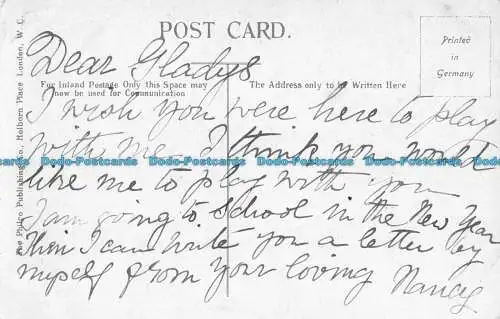 POST CARD.
Printed
in
Germany
The Philco Publishing Co., Holborn Place London, W. C.
For Inland Postage Only this Space may
now be used for Communication
The Address only to be Written Here
Dear Gladys
I wish you were here to play
with me I think you would
like me to play with you
I am going to school in the New Year
then I can write you a letter by
myself from your loving Nancy
Dodo-Postcards Dodo-Postcards Dodo-Postcards Dodo-Postcards Dodo-Postcards Dodo-Postcards